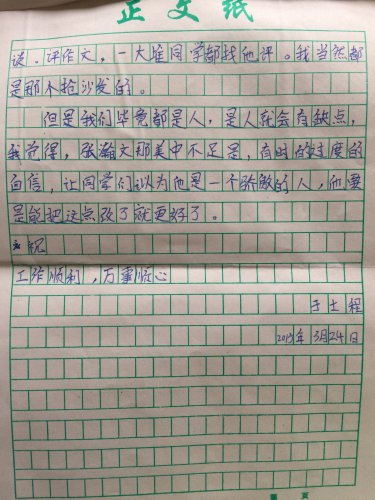 正文纸
谈、评作文，一大堆同学都找他评。我当然都
是那个抢沙发的。
但是我们毕竟都是人，是人就会有缺点，
我觉得，张瀚文那美中不足是，有时的过度的
自信，让同学们以为他是一个骄傲的人，他要
是能把这点改了就更好了。
祝
工作顺利，万事顺心
于士程
2019年3月24日
页